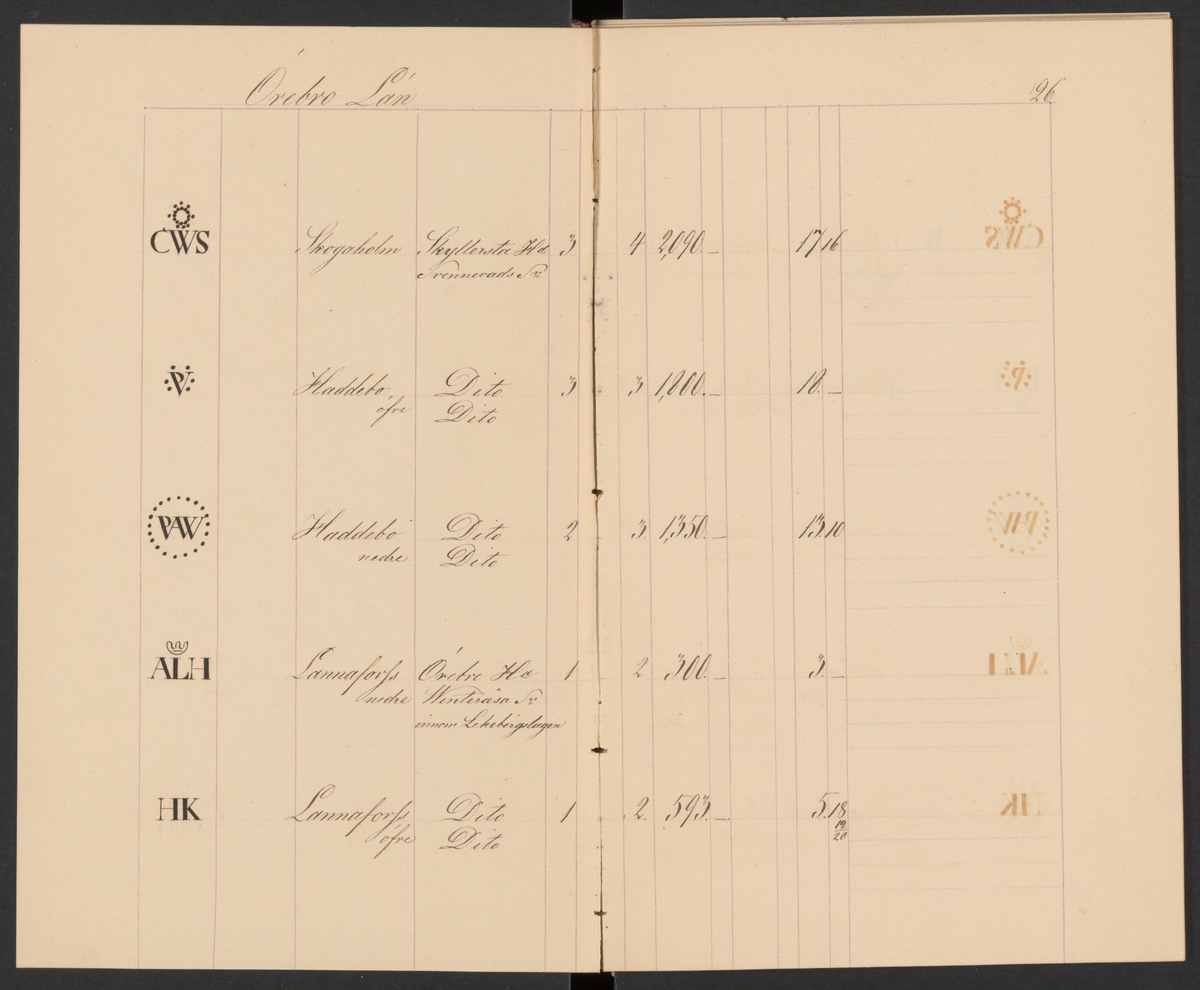 Örebro Län
26.
CWS Skogaholm Skyllersta Hd 3 4 2,090. — 17 16
Svennevads Sn
V Haddebo, Dito 3 3 1,800. — 18. —
öfre Dito
PAW Haddebo Dito 2 3. 1,350. — 13. 10
nedre Dito
ALH Lannaforss Örebro Hd 1 2 300. — 3. —
nedre Winteråsa Sn
innom Lekebergslagen
HK Lannaforss Dito 1 2. 593. — 5. 18 19/20
öfre Dito